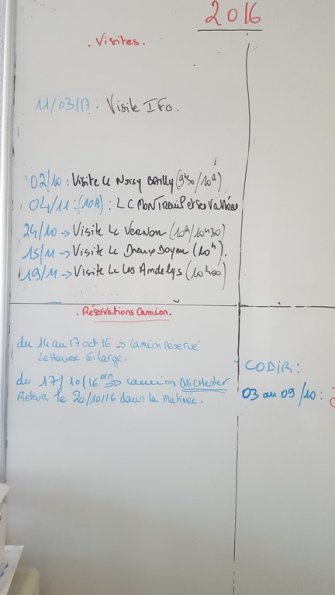 2016
. Visites.
11/03/17 : Visite IFo.
02/10 : Visite Lc Noisy Bailly (9h30/10h)
04/11 : (10h) : LC MONTREUIL et ses vallées
24/10 → Visite Lc VERNON (10h/10h30)
15/11 → Visite Lc Dreux Doyen (10h).
19/11 → Visite Lc Les Andelys (10h00)
. Réservations Camion.
du 14 au 17 oct 16 → camion réservé
du 17/10/16 → camion
Retour le 20/10/16 dans la matinée.
CODIR :
03 au 09/10 :